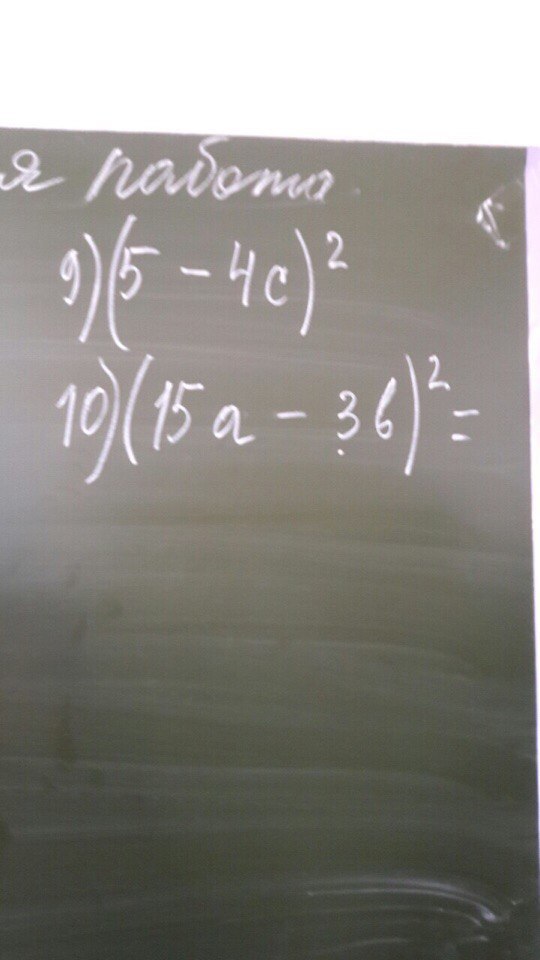 я работа
9) (5 - 4c)²
10) (15a - 3b)² =